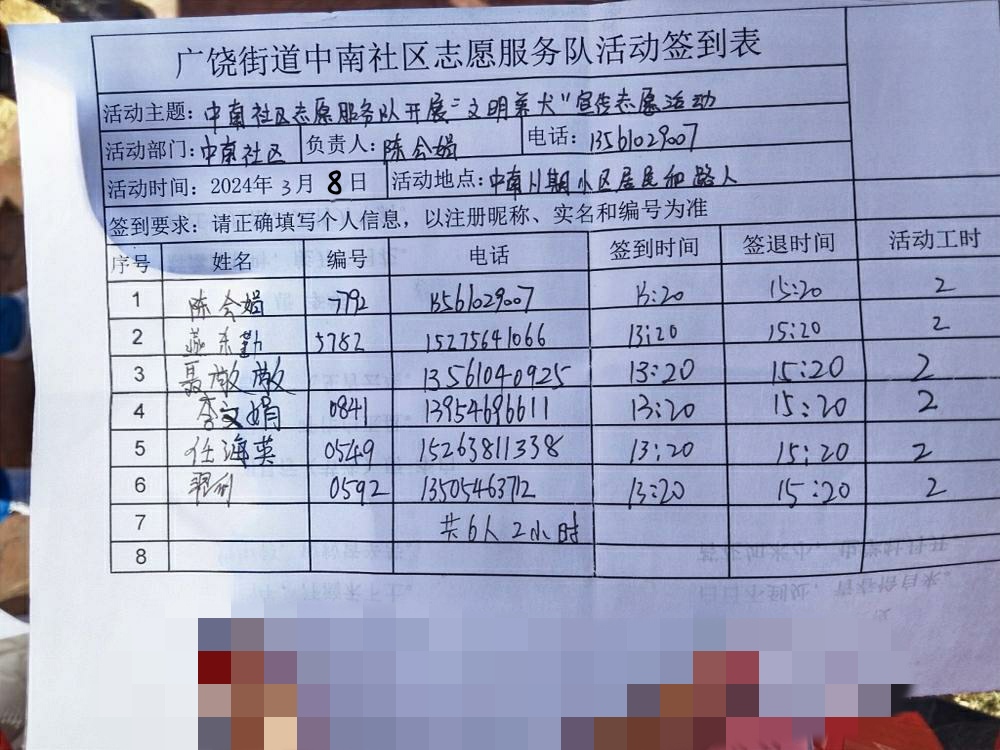 广饶街道中南社区志愿服务队活动签到表
活动主题：中南社区志愿服务队开展“文明养犬”宣传志愿活动
活动部门：中南社区 负责人：陈会娟 电话：13561029007
活动时间：2024年3月8日 活动地点：中南川期小区居民和路人
签到要求：请正确填写个人信息，以注册昵称、实名和编号为准
序号 姓名 编号 电话 签到时间 签退时间 活动工时
1 陈会娟 3792 13561029007 13:20 15:20 2
2 燕东勤 5782 15275641066 13:20 15:20 2
3 聂敬敬 13561040925 13:20 15:20 2
4 李文娟 0841 13954696611 13:20 15:20 2
5 任海英 0549 15263811338 13:20 15:20 2
6 翟利 0592 13505463712 13:20 15:20 2
7 共6人2小时
8